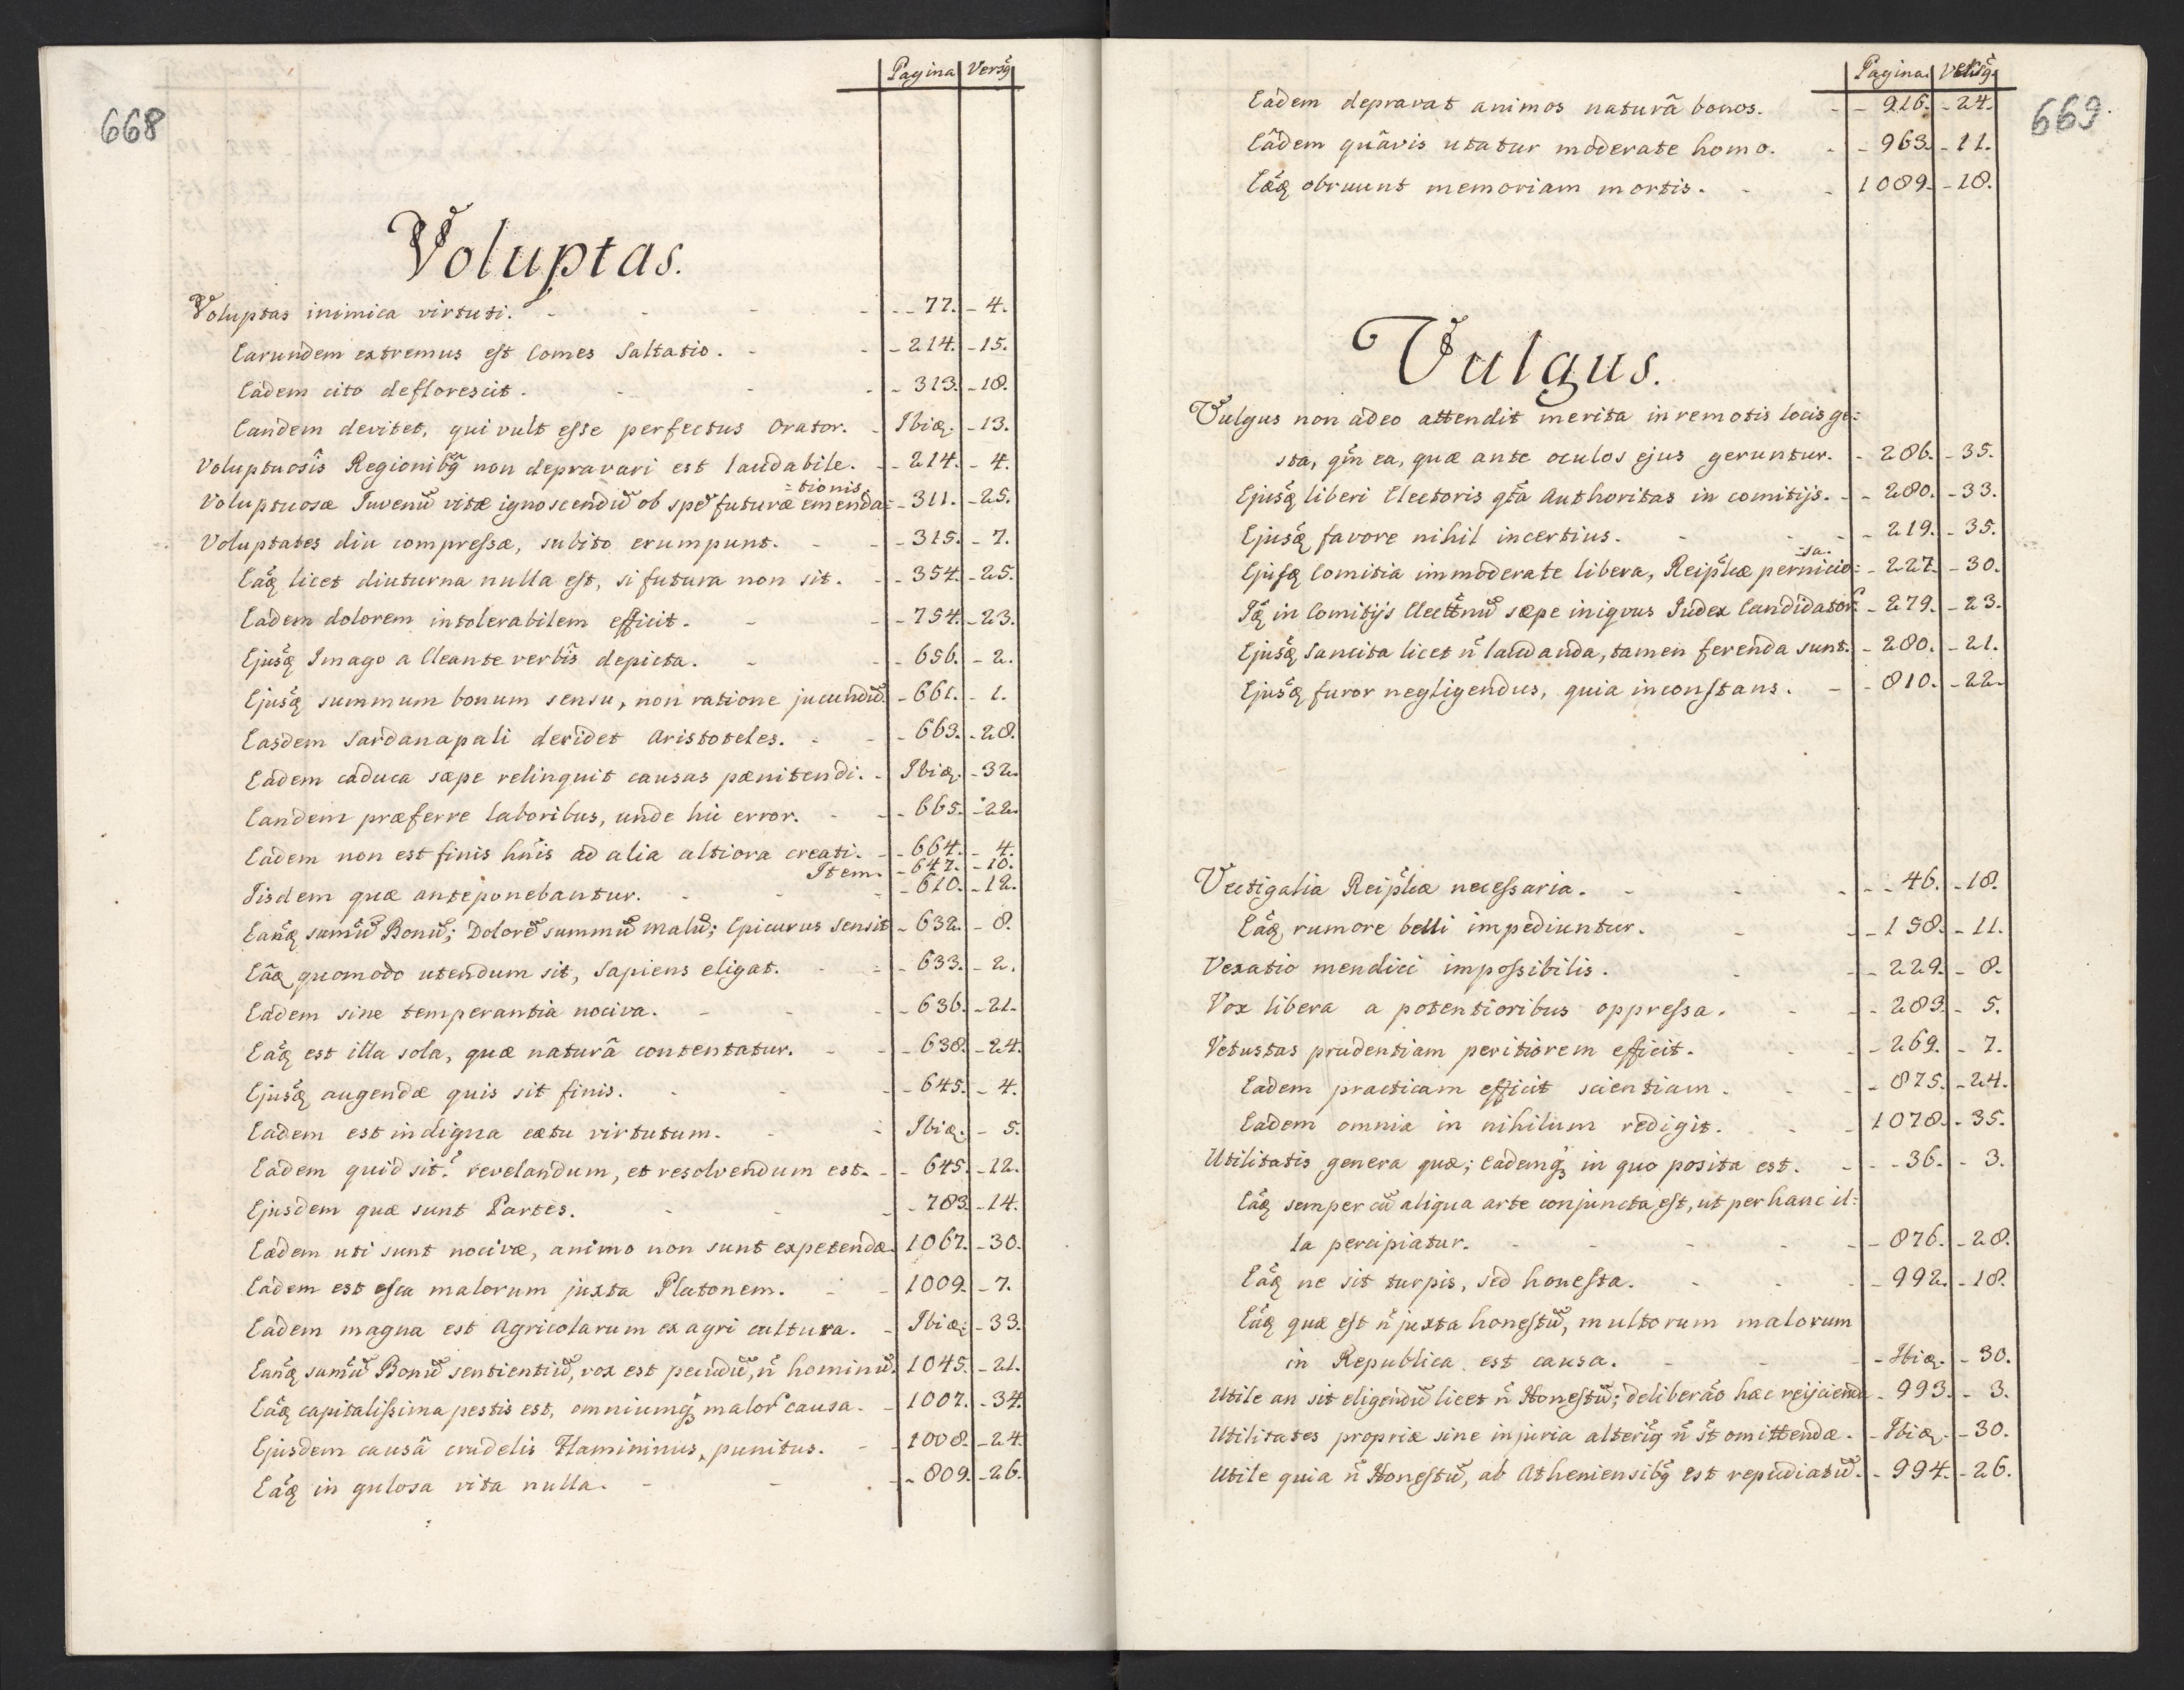 668
Pagina Versq̃
Voluptas.
Voluptas inimica virtuti. - - 77. - 4.
Earundem extremus est Comes Saltatio. - 214. - 15.
Eadem cito deflorescit. - 313. - 18.
Eandem devitet, qui vult esse perfectus Orator. - Ibiq. - 13.
Voluptuosis Regionibq̃ non depravari est laudabile. - 214. - 4.
=tionis.
Voluptuosæ Juvenũ vitæ ignoscendũ ob spẽ futuræ emenda= - 311. - 25.
Voluptates diu compressæ, subito erumpunt. - 315. - 7.
Eãq licet diuturna nulla est, si futura non sit. - 354. - 25.
Eadem dolorem intolerabilem efficit. - 754. - 23.
Ejusq̃ Imago a Cleante verbis depicta. - 656. - 2.
Ejusq̃ summum bonum sensu, non ratione jucundũ. - 661. - 1.
Easdem Sardanapali deridet Aristoteles. - 663. - 28.
Eadem caduca sæpe relinquit causas pænitendi. - Ibiq. - 32.
Eandem præferre laboribus, unde hic error. - 665. - 22.
Eadem non est finis hñis ad alia altiora creati. - 664. - 4.
Item. - 647. - 10.
Iisdem quæ anteponebantur. - 610. - 12.
Eanq̃ sum̃ũ Bonũ; Dolorẽ summũ malũ; Epicurus sensit - 632. - 8.
Eãq quomodo utendum sit, Sapiens eligat. - 633. - 2.
Eadem sine temperantia nociva. - 636. - 21.
Eãq est illa sola, quæ naturâ contentatur. - 638. - 24.
Ejusq̃ augendæ quis sit finis. - 645. - 4.
Eadem est indigna cætu virtutum. - Ibiq. - 5.
Eadem quid sit? revelandum, et resolvendum est. - 645. - 12.
Ejusdem quæ sunt Partes. - 783. - 14.
Eædem uti sunt nocivæ, animo non sunt expetendæ. 1067. - 30.
Eadem est esca malorum juxta Platonem. - 1009. - 7.
Eadem magna est Agricolarum ex agri cultura. - Ibiq. - 33.
Eanq̃ sum̃ũ Bonũ sentientiũ, vox est pecudũ, ñ hominũ. 1045. - 21.
Eãq capitalissima pestis est, omniumq̃ malor causa. - 1007. - 34.
Ejusdem causâ crudelis Flamininus, punitus. - 1008. - 24.
Eãq in gulosa vita nulla. - 809. - 26.
669.
Pagina. Versq̃.
Eadem depravat animos naturâ bonos. - 926. - 24.
Eâdem quãvis utatur moderate homo. - 963. - 11.
Eæq̃ obruunt memoriam mortis. - 1089. - 18.
Vulgus.
Vulgus non adeo attendit merita in remotis locis ge=
sta, qm̃ ea, quæ ante oculos ejus geruntur. - 286. - 35.
Ejusq̃ liberi Electoris qta Authoritas in comitijs. - 280. - 33.
Ejusq̃ favore nihil incertius. - 219. - 35.
-sa.
Ejusq̃ Comitia immoderate libera, Reiplicæ pernicio= - 227. - 30.
Iq̃ in Comitijs Electionũ sæpe iniqvus Judex Candidator. - 279. - 23.
Ejusq̃ Sancita licet ñ laudanda, tamen ferenda sunt. - 280. - 21.
Ejusq̃ furor negligendus, quia inconstans. - 810. - 22.
Vectigalia Reiplicæ necessaria. - 46. - 18.
Eãq rumore belli impediuntur. - 158. - 11.
Vexatio mendici impossibilis. - 229. - 8.
Vox libera a potentioribus oppressa. - 283. - 5.
Vetustas prudentiam peritiorem efficit. - 269. - 7.
Eadem practicam efficit scientiam. - 875. - 24.
Eadem omnia in nihilum redigit. - 1078. - 35.
Utilitatis genera quæ; Eademq̃ in quo posita est. - 36. - 3.
Eãq semper cũ aliqua arte conjuncta est, ut per hanc il=
la percipiatur. - 876. - 28.
Eãq ne sit turpis, sed honesta. - 992. - 18.
Eãq quæ est ñ juxta honestũ, multorum malorum
in Republica est causa. - Ibiq. - 30.
Utile an sit eligendũ licet ñ Honestũ; deliberao hæc reijcienda - 993. - 3.
Utilitates propriæ sine injuria alteriq̃ ñ st omittendæ. - Ibiq. - 30.
Utile quia ñ Honestũ, ab Atheniensibq̃ est repudiatũ. - 994. - 26.